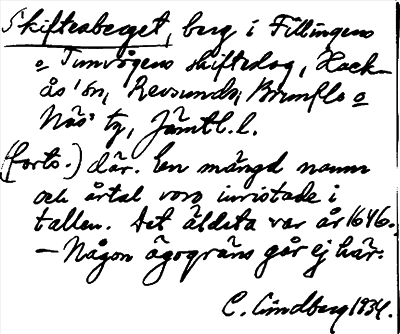 Skiftesberget, berg i Fillingens
o Timvågens skiftedog, Hack-
ås' sn, Revsunds, Brunflo o
Näs' tg, Jämtl. l.
(forts.) där. En mängd namn
och årtal voro inristade i
tallen. Det äldsta var år 1646.
– Någon ägogräns går ej här.
C. Lindberg 1934.